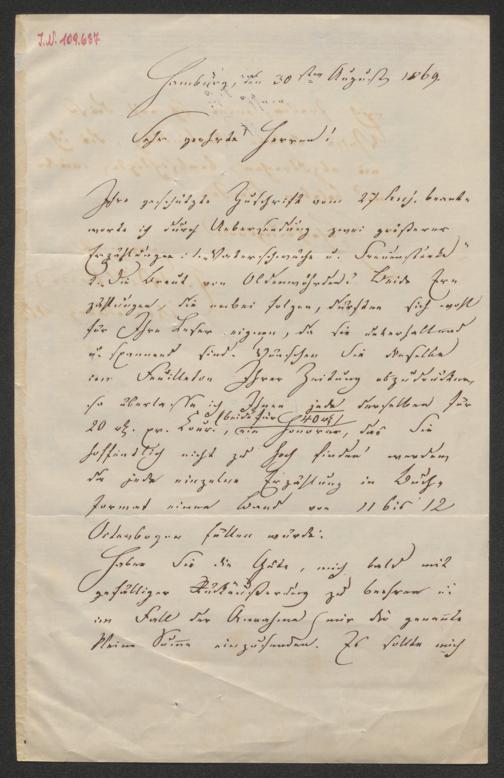 J.N. 109.687
Hamburg, den 30sten August 1869.
Sehr geehrte Herren!
Ihre geschätzte Zuschrift vom 27 huj. beant-
worte ich durch Uebersendung zwei größerer
Erzählungen: 1. Vaterschwäche u. Freundestärke
2. Die Braut von Oldenwöhrden. Beide Er-
zählungen, die anbei folgen, dürften sich wohl
für Ihre Leser eignen, da sie unterhaltend
u. spannend sind. Wünschen Sie dieselben
im Feuilleton Ihrer Zeitung abzudrucken,
so überlasse ich Ihnen jede derselben für
20 rt. pr. Cour., (beide für 40 rt) ein Honorar, das Sie
hoffentlich nicht zu hoch finden werden
da jede einzelne Erzählung in Buch-
format einen Band von 11 bis 12
Octavbogen füllen würde.
Haben Sie die Güte, mich bald mit
gefälliger Rückäußerung zu beehren u.
im Fall der Annahme mir die genannte
kleine Summe einzusenden. Es sollte mich